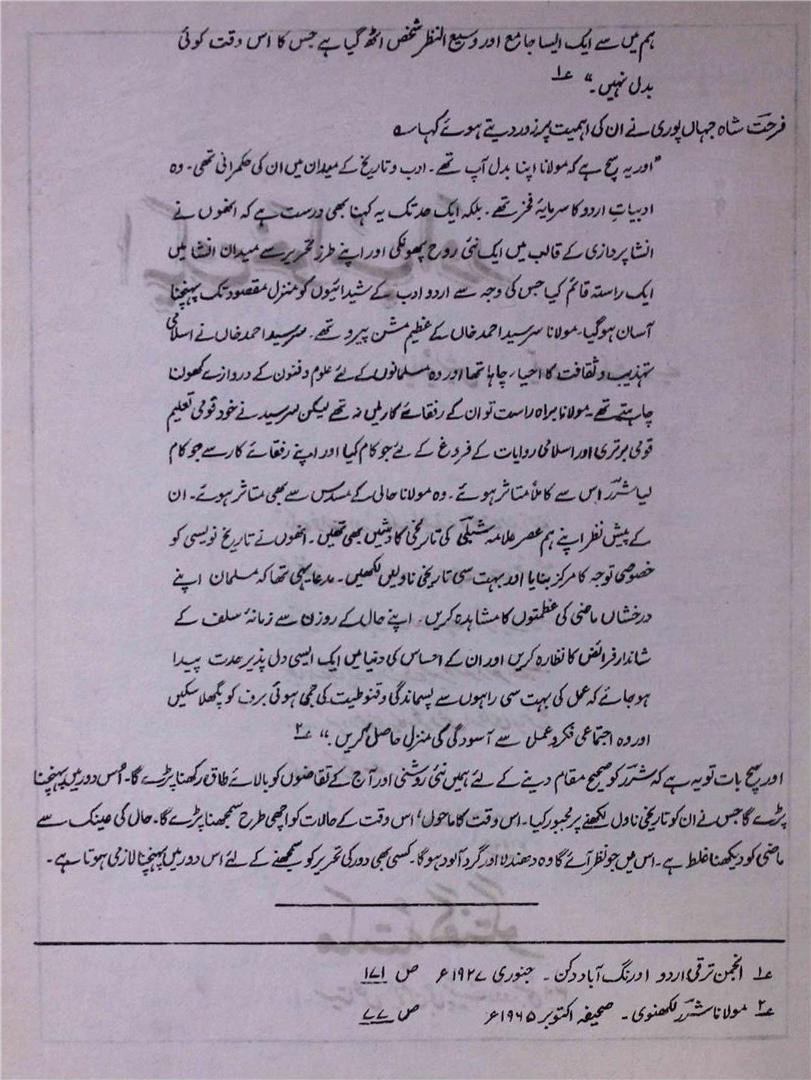 ہم میں سے ایک ایسا جامع اور وسیع النظر شخص اٹھ گیا ہے جس کا اس وقت کوئی
بدل نہیں۔" ؎۱
فرحت شاہ جہاں پوری نے ان کی اہمیت پر زور دیتے ہوئے کہا ہے
"اور یہ سچ ہے کہ مولانا اپنا بدل آپ تھے۔ ادب و تاریخ کے میدان میں ان کی حکمرانی تھی۔ وہ
ادبیاتِ اردو کا سرمایۂ فخر تھے۔ بلکہ ایک حد تک یہ کہنا بھی درست ہے کہ انھوں نے
انشا پردازی کے قالب میں ایک نئی روح پھونکی اور اپنے طرز تحریر سے میدان انشا میں
ایک راستہ قائم کیا جس کی وجہ سے اردو ادب کے شیدائیوں کو منزل مقصود تک پہنچنا
آسان ہوگیا۔ مولانا سرسید احمد خاں کے عظیم مشن پیرو تھے۔ سرسید احمد خاں نے اسلامی
تہذیب و ثقافت کا احیاء چاہا تھا اور وہ مسلمانوں کے لئے علوم و فنون کے دروازے کھولنا
چاہتے تھے۔ مولانا براہ راست تو ان کے رفقائے کار میں نہ تھے لیکن سرسید نے خود قومی تعلیم
قومی برتری اور اسلامی روایات کے فروغ کے لئے جو کام کیا اور اپنے رفقائے کار سے جو کام
لیا شررؔ اس سے کاملاً متاثر ہوئے۔ وہ مولانا حالی کے مسدس سے بھی متاثر ہوئے۔ ان
کے پیش نظر اپنے ہم عصر علامہ شبلیؔ کی تاریخی کاوشیں بھی تھیں۔ انھوں نے تاریخ نویسی کو
خصوصی توجہ کا مرکز بنایا اور بہت سی تاریخی ناولیں لکھیں۔ مدعا یہی تھا کہ مسلمان اپنے
درخشاں ماضی کی عظمتوں کا مشاہدہ کریں۔ اپنے حال کے روزن سے زمانۂ سلف کے
شاندار فرائض کا نظارہ کریں اور ان کے احساس کی دنیا میں ایک ایسی دل پذیر حدت پیدا
ہو جائے کہ عمل کی بہت سی راہوں سے پسماندگی و قنوطیت کی جمی ہوئی برف کو پگھلا سکیں
اور وہ اجتماعی فکر و عمل سے آسودگی کی منزل حاصل کریں۔" ؎۲
اور سچ بات تو یہ ہے کہ شررؔ کو صحیح مقام دینے کے لئے ہمیں نئی روشنی اور آج کے تقاضوں کو بالائے طاق رکھنا پڑے گا۔ اُس دور میں پہنچنا
پڑے گا جس نے ان کو تاریخی ناول لکھنے پر مجبور کیا۔ اس وقت کا ماحول، اس وقت کے حالات کو اچھی طرح سمجھنا پڑے گا۔ حال کی عینک سے
ماضی کو دیکھنا غلط ہے۔ اس میں جو نظر آئے گا وہ دھندلا اور گرد آلود ہوگا۔ کسی بھی دور کی تحریر کو سمجھنے کے لئے اس دور میں پہنچنا لازمی ہوتا ہے۔
؎۱ انجمن ترقی اردو اورنگ آباد دکن۔ جنوری ۱۹۲۷ء ص ۱۷۱
؎۲ مولانا شررؔ لکھنوی۔ صحیفہ اکتوبر ۱۹۶۵ء ص ۷۷